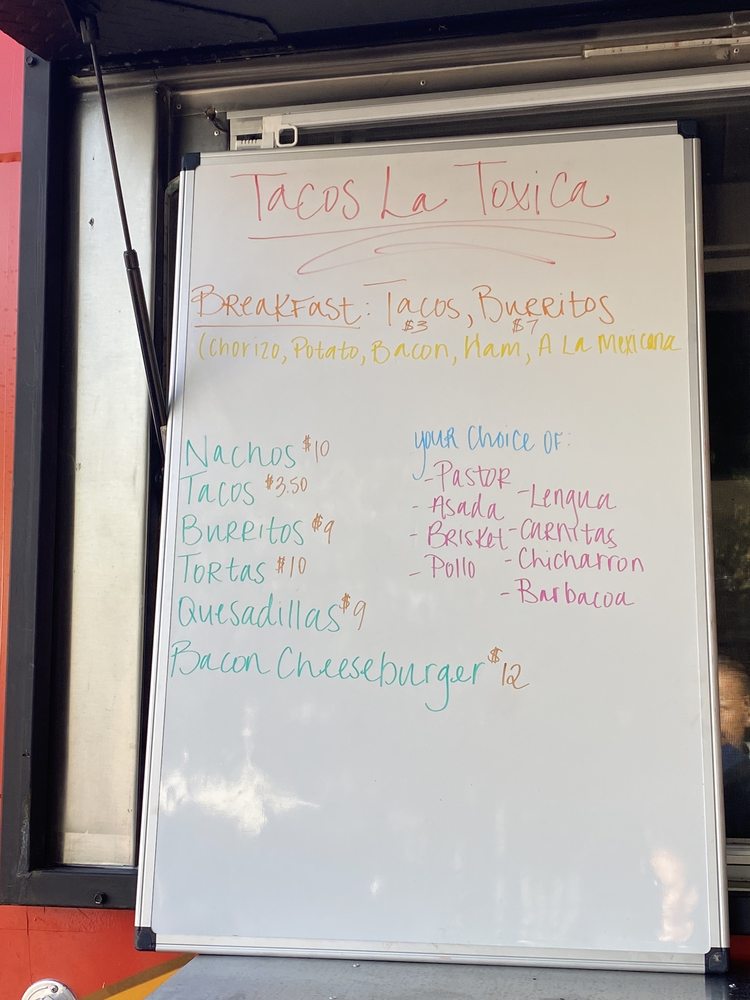 Tacos La Toxica
Breakfast: Tacos, Burritos
$3 $7
(Chorizo, Potato, Bacon, Ham, A La Mexicana
Nachos $10
Tacos $3.50
Burritos $9
Tortas $10
Quesadillas $9
Bacon Cheeseburger $12
your choice of:
- Pastor
- Asada
- Brisket
- Pollo
- Lengua
- Carnitas
- Chicharron
- Barbacoa